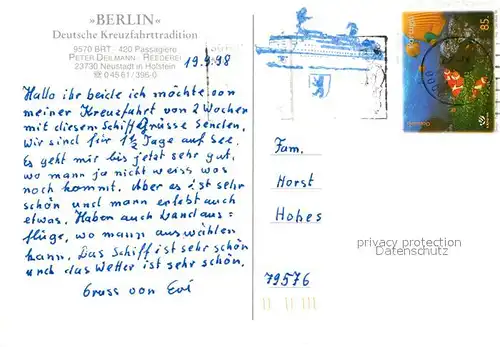 »BERLIN«
Deutsche Kreuzfahrttradition
9570 BRT · 420 Passagiere
PETER DEILMANN · REEDEREI
23730 Neustadt in Holstein
☎ 0 45 61 / 396-0
19.4.98
Hallo ihr beide ich möchte von
meiner Kreuzfahrt von 2 Wochen
mit diesem Schiff Grüsse senden.
Wir sind für 1 1/2 Tage auf See.
Es geht mir bis jetzt sehr gut,
wo mann ja nicht weiss was
noch kommt. Aber es ist sehr
schön und mann erlebt auch
etwas. Haben auch Landaus=
flüge, wo mann auswählen
kann. Das Schiff ist sehr schön
und das Wetter ist sehr schön.
Gruss von Evi
Fam.
Horst
Hohes
79576
85.
privacy protection
Datenschutz